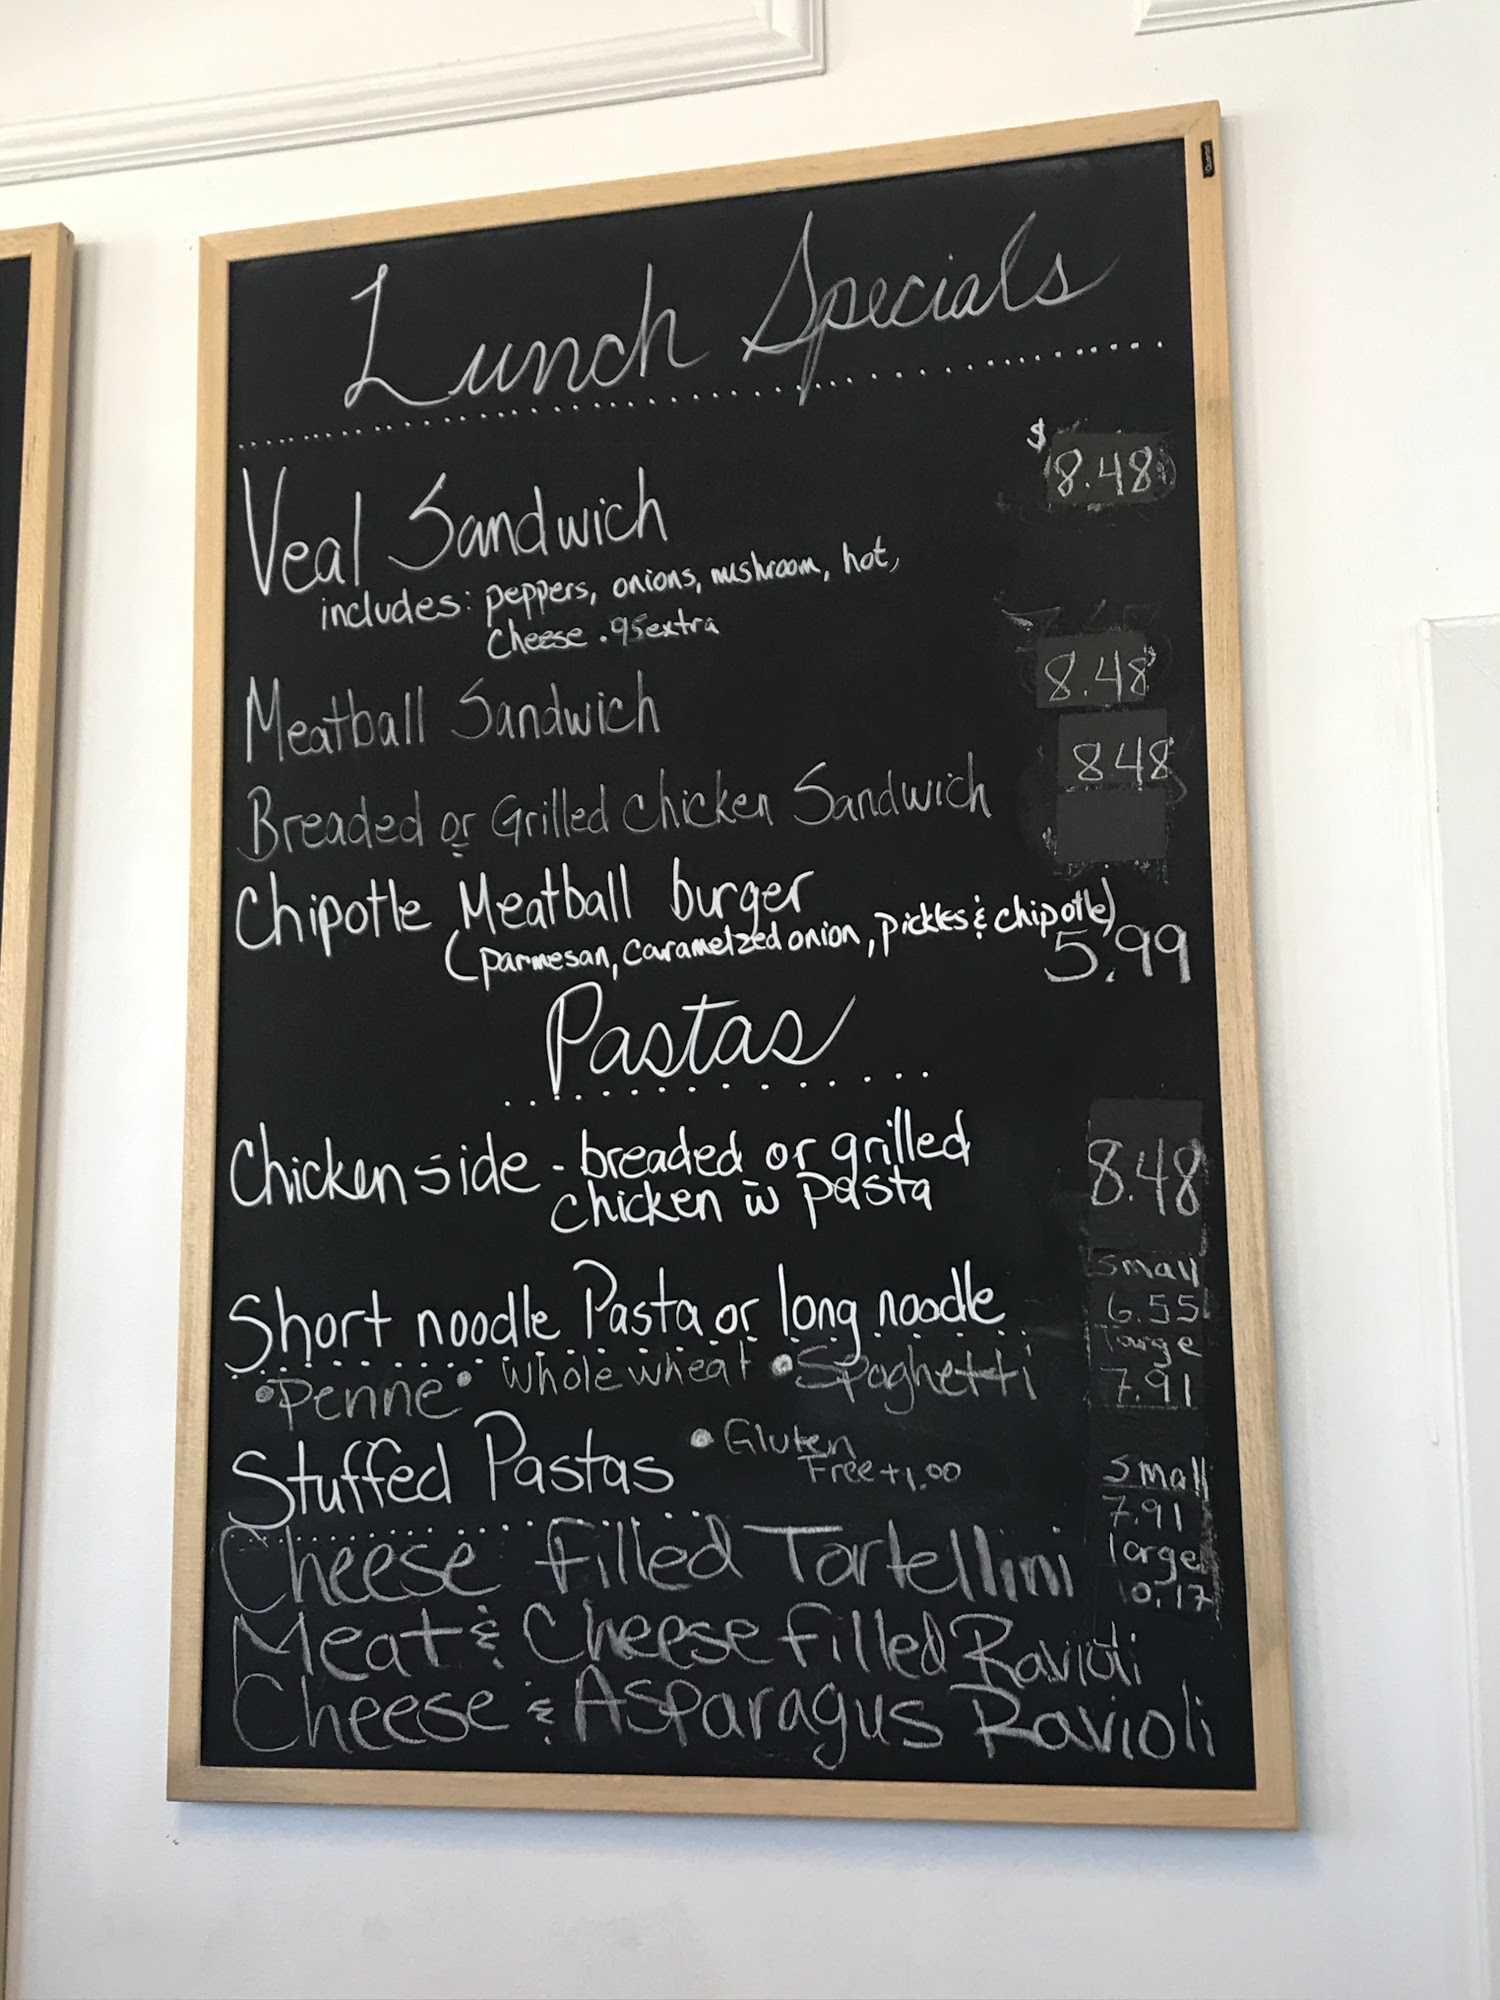 Quartet
Lunch Specials
$
8.48
Veal Sandwich
includes: peppers, onions, mushroom, hot,
cheese .95 extra
8.48
Meatball Sandwich
848
Breaded or Grilled Chicken Sandwich
Chipotle Meatball burger
(parmesan, caramelzed onion, pickles & chipotle)
5.99
Pastas
Chicken side - breaded or grilled
chicken w pasta
8.48
Small
6.55
large
7.91
Short noodle Pasta or long noodle
• Penne • whole wheat • Spaghetti
• Gluten
Free +1.00
Stuffed Pastas
Small
7.91
large
0.17
Cheese filled Tortellini
Meat & Cheese filled Ravioli
Cheese & Asparagus Ravioli